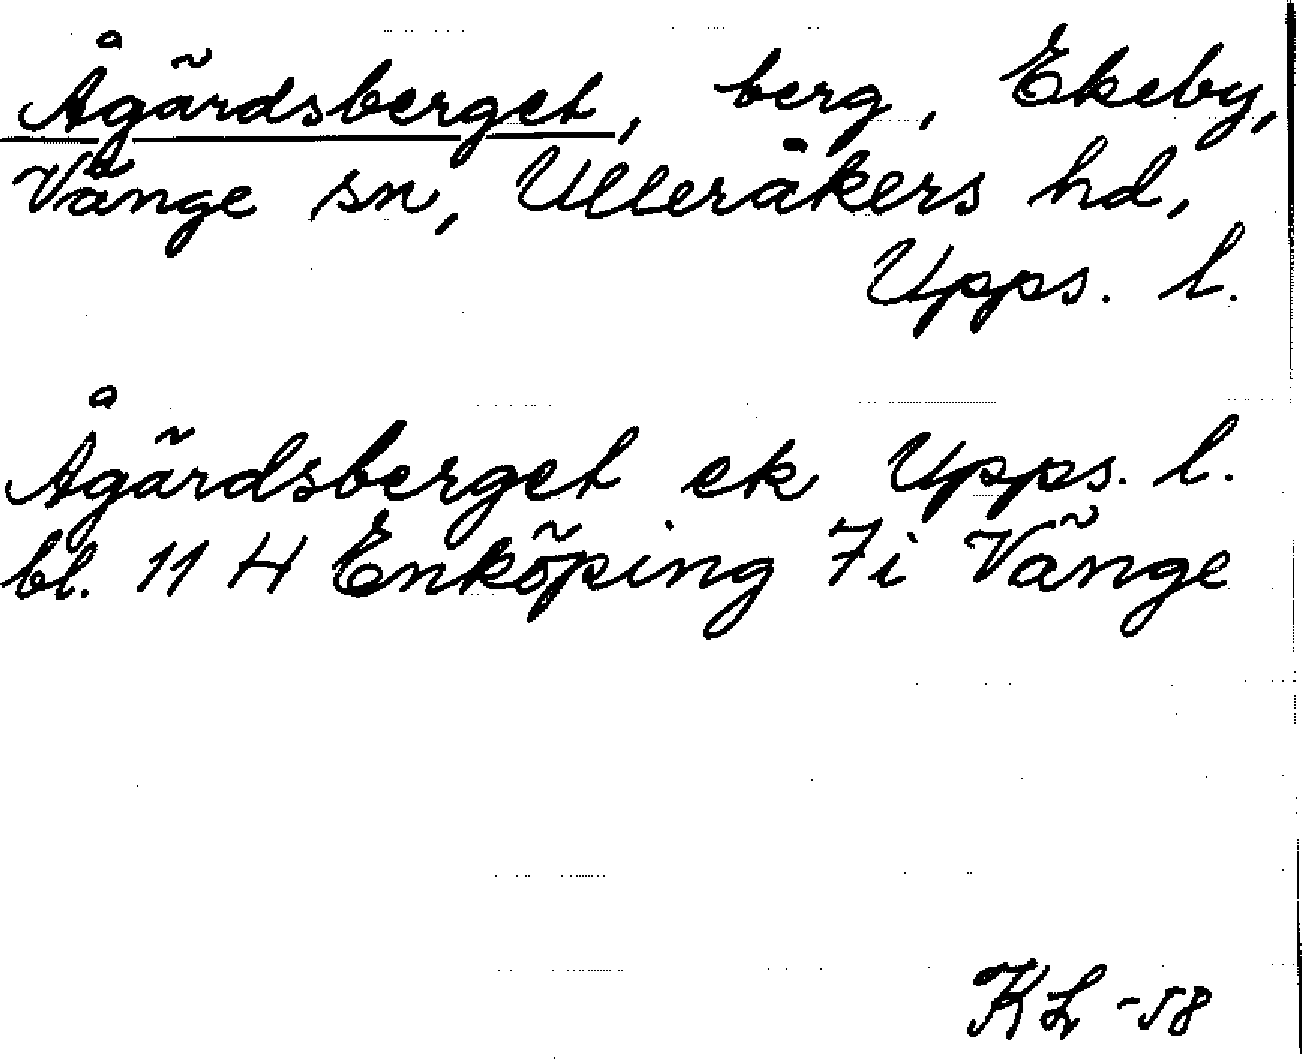 Ågärdsberget, berg, Ekeby,
Vänge sn, Ulleråkers hd,
Upps. l.
Ågärdsberget ek Upps. l.
bl. 11 H Enköping 7i Vänge
KL -58